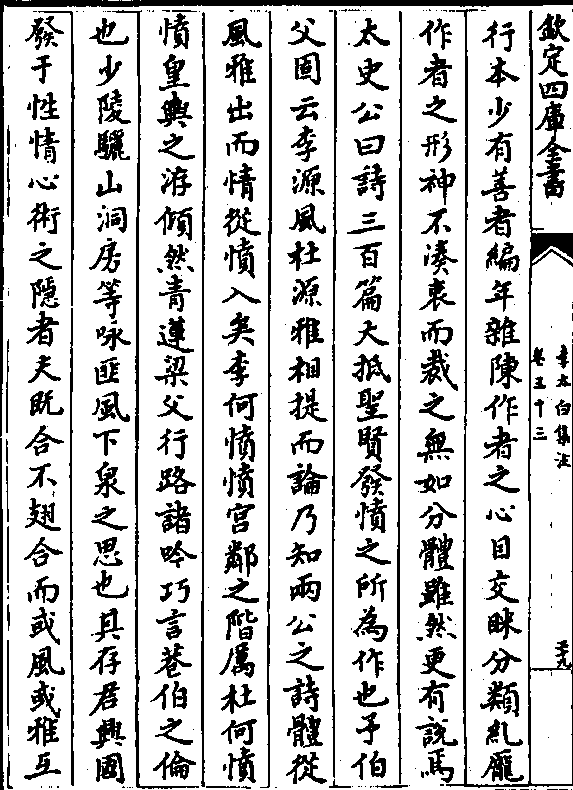 欽定四庫全書
李太白集注
卷三十三
五九
行本少有善者編年雜陳作者之心目交眯分類乿龎
作者之形神不湊衷而裁之無如分體雖然更有說焉
太史公曰詩三百篇大抵聖賢發憤之所為作也予伯
父固云李源風杜源雅相提而論乃知兩公之詩體從
風雅出而情從憤入矣李何憤憤宫鄰之階厲杜何憤
憤皇輿之洊傾然青蓮梁父行路諸吟巧言巷伯之倫
也少陵驪山洞房等咏匪風下泉之思也其存君興國
發于性情心術之隱者夫既合不翅合而或風或雅互